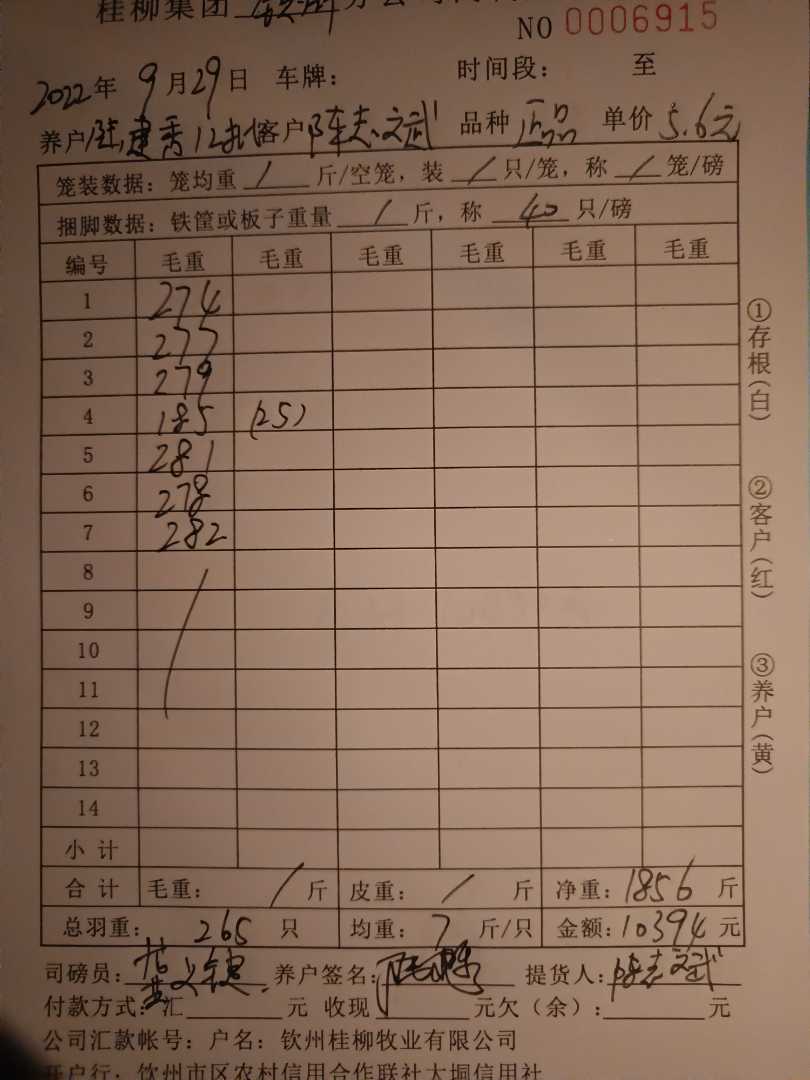 桂柳集团 钦州分公司
NO 0006915
2022年 9月29日 车牌: 时间段: 至
养户 陆建秀12批 客户 陈志文武 品种 正品 单价 5.6元
笼装数据: 笼均重 / 斤/空笼, 装 / 只/笼, 称 / 笼/磅
捆脚数据: 铁筐或板子重量 / 斤, 称 40 只/磅
编号 毛重 毛重 毛重 毛重 毛重 毛重
1 274
2 277
3 279
4 185 (25)
5 281
6 278
7 282
8
9
10
11
12
13
14
小计
合计 毛重: / 斤 皮重: / 斤 净重: 1856 斤
总羽重: 265 只 均重: 7 斤/只 金额: 10394 元
①存根(白)
②客户(红)
③养户(黄)
司磅员: 养户签名: 提货人: 陈志文武
付款方式: 汇 元 收现 元欠(余): 元
公司汇款帐号: 户名: 钦州桂柳牧业有限公司
开户行: 钦州市区农村信用合作联社大垌信用社